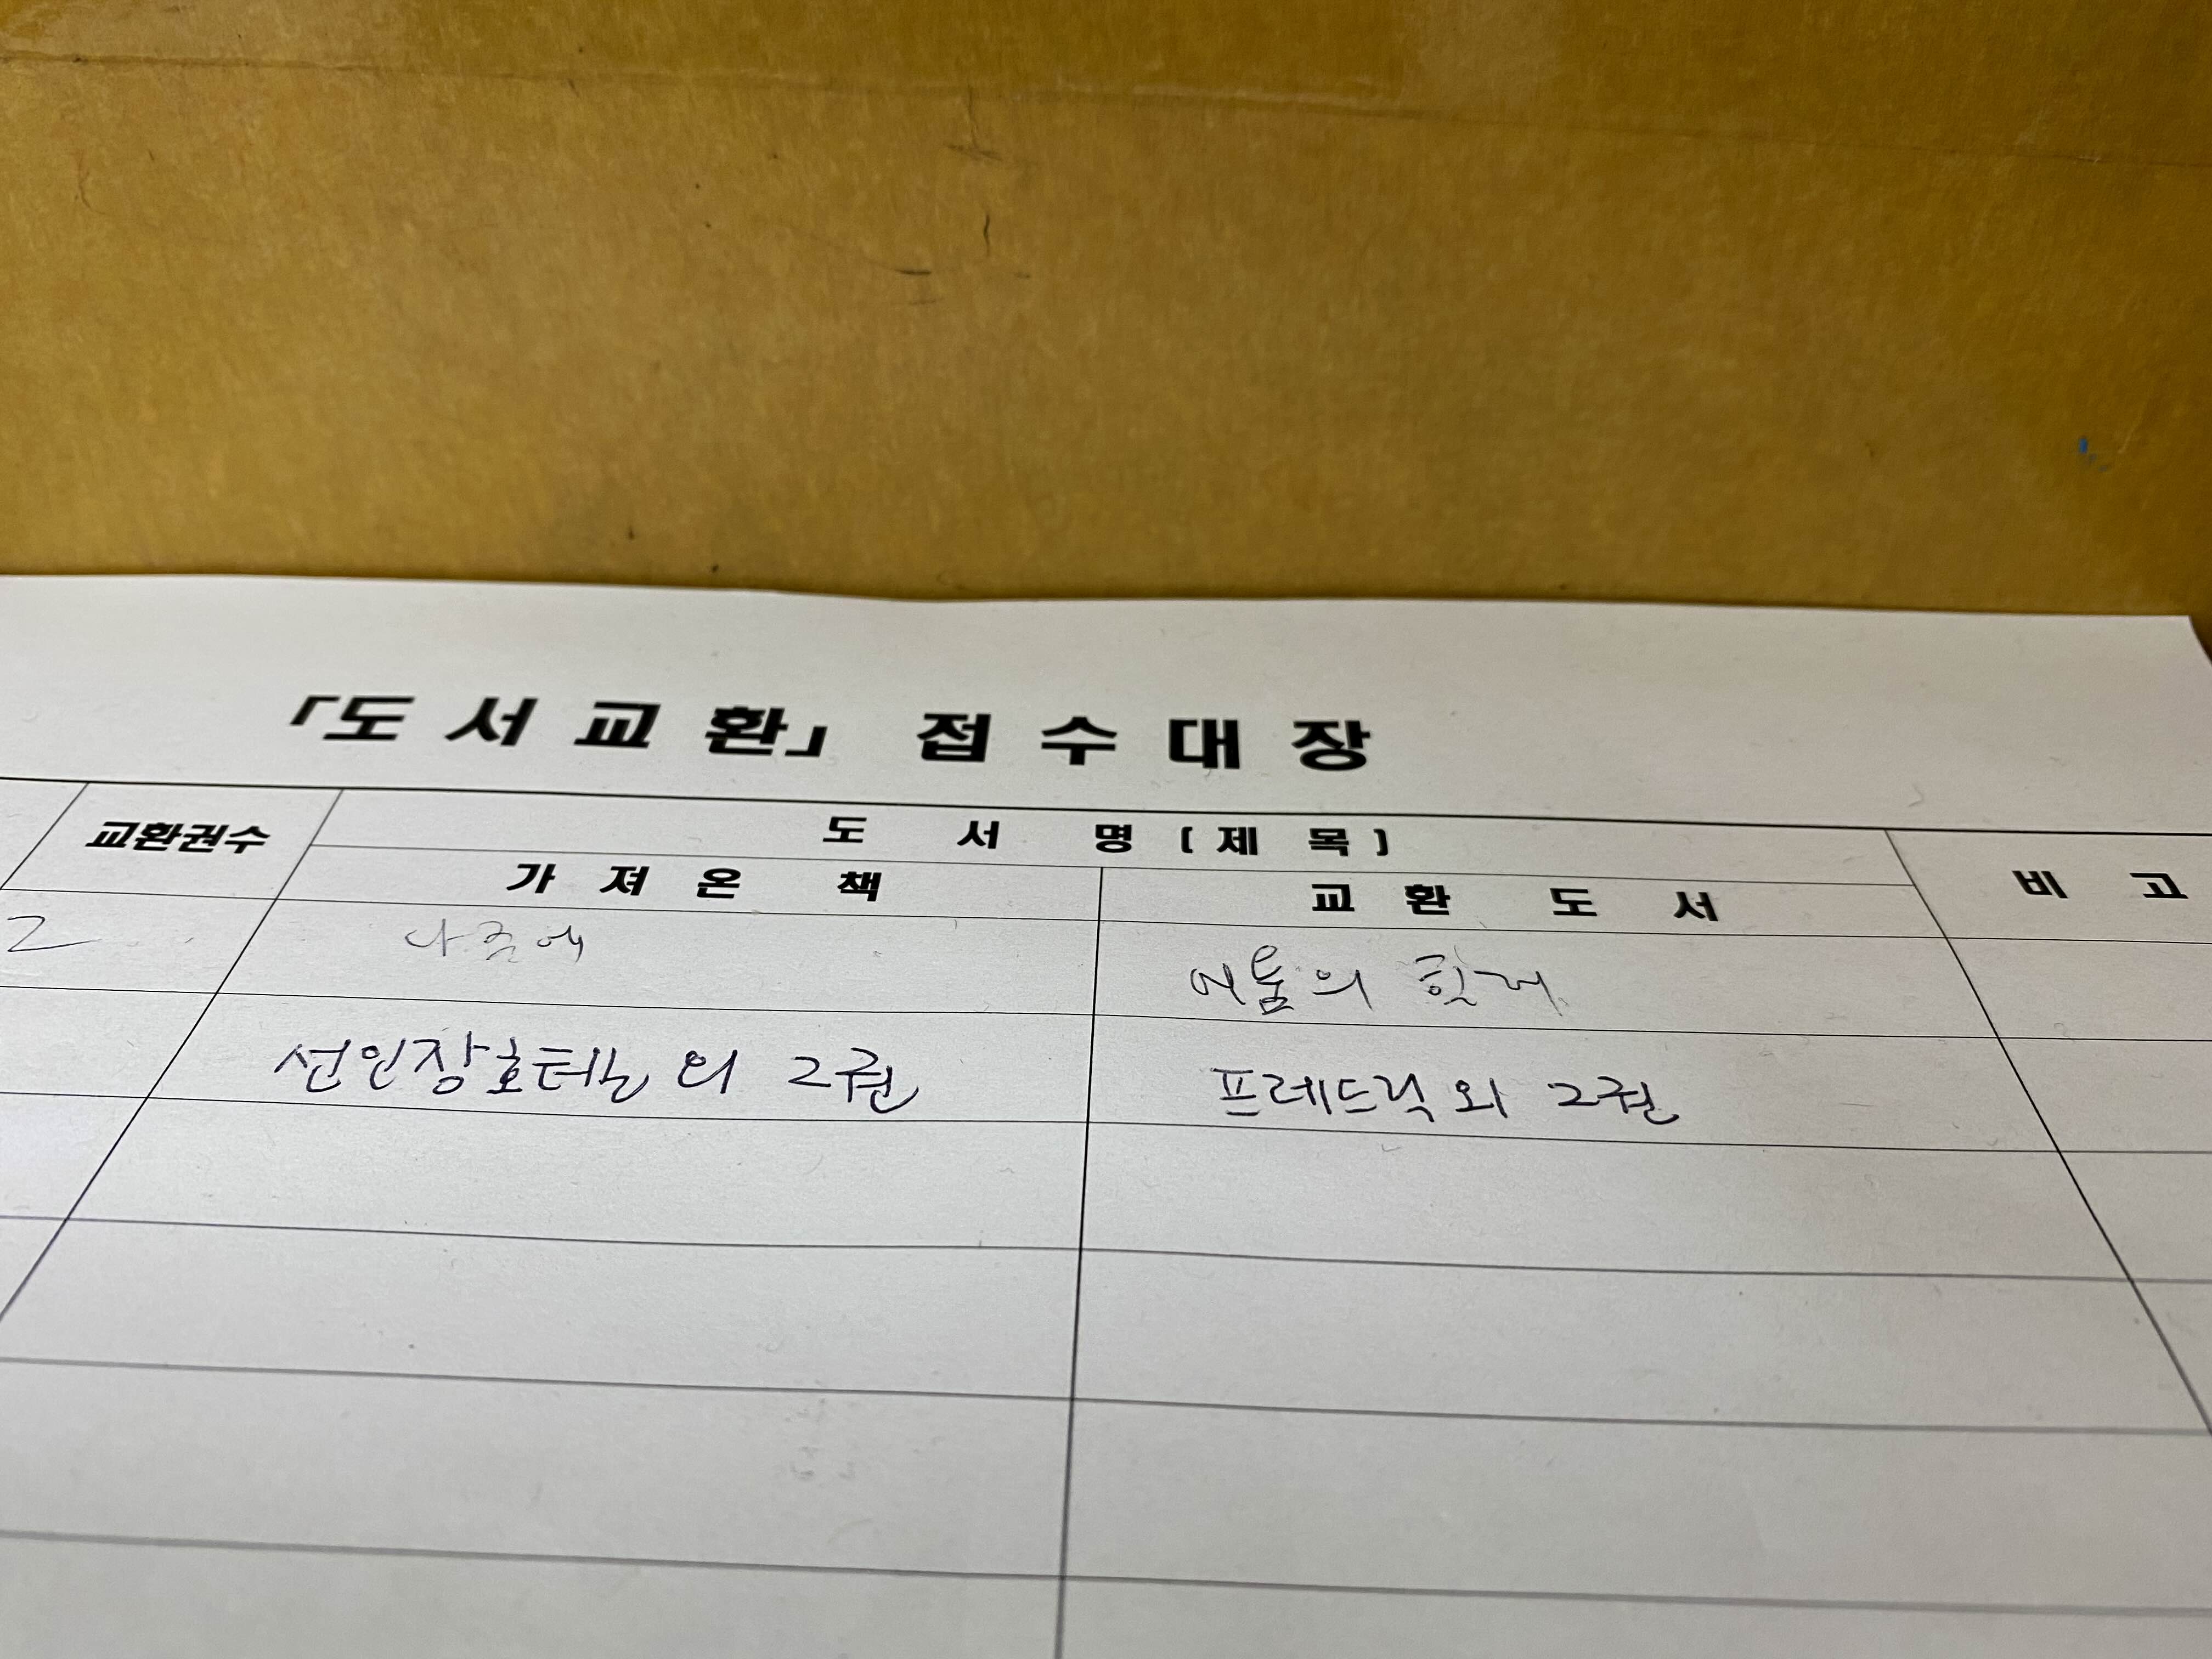 「도서교환」 접수대장
교환권수 도서명(제목) 비고
가져온 책 교환도서
2 나중에 어둠의
선인장호텔 외 2권 프레드릭 외 2권